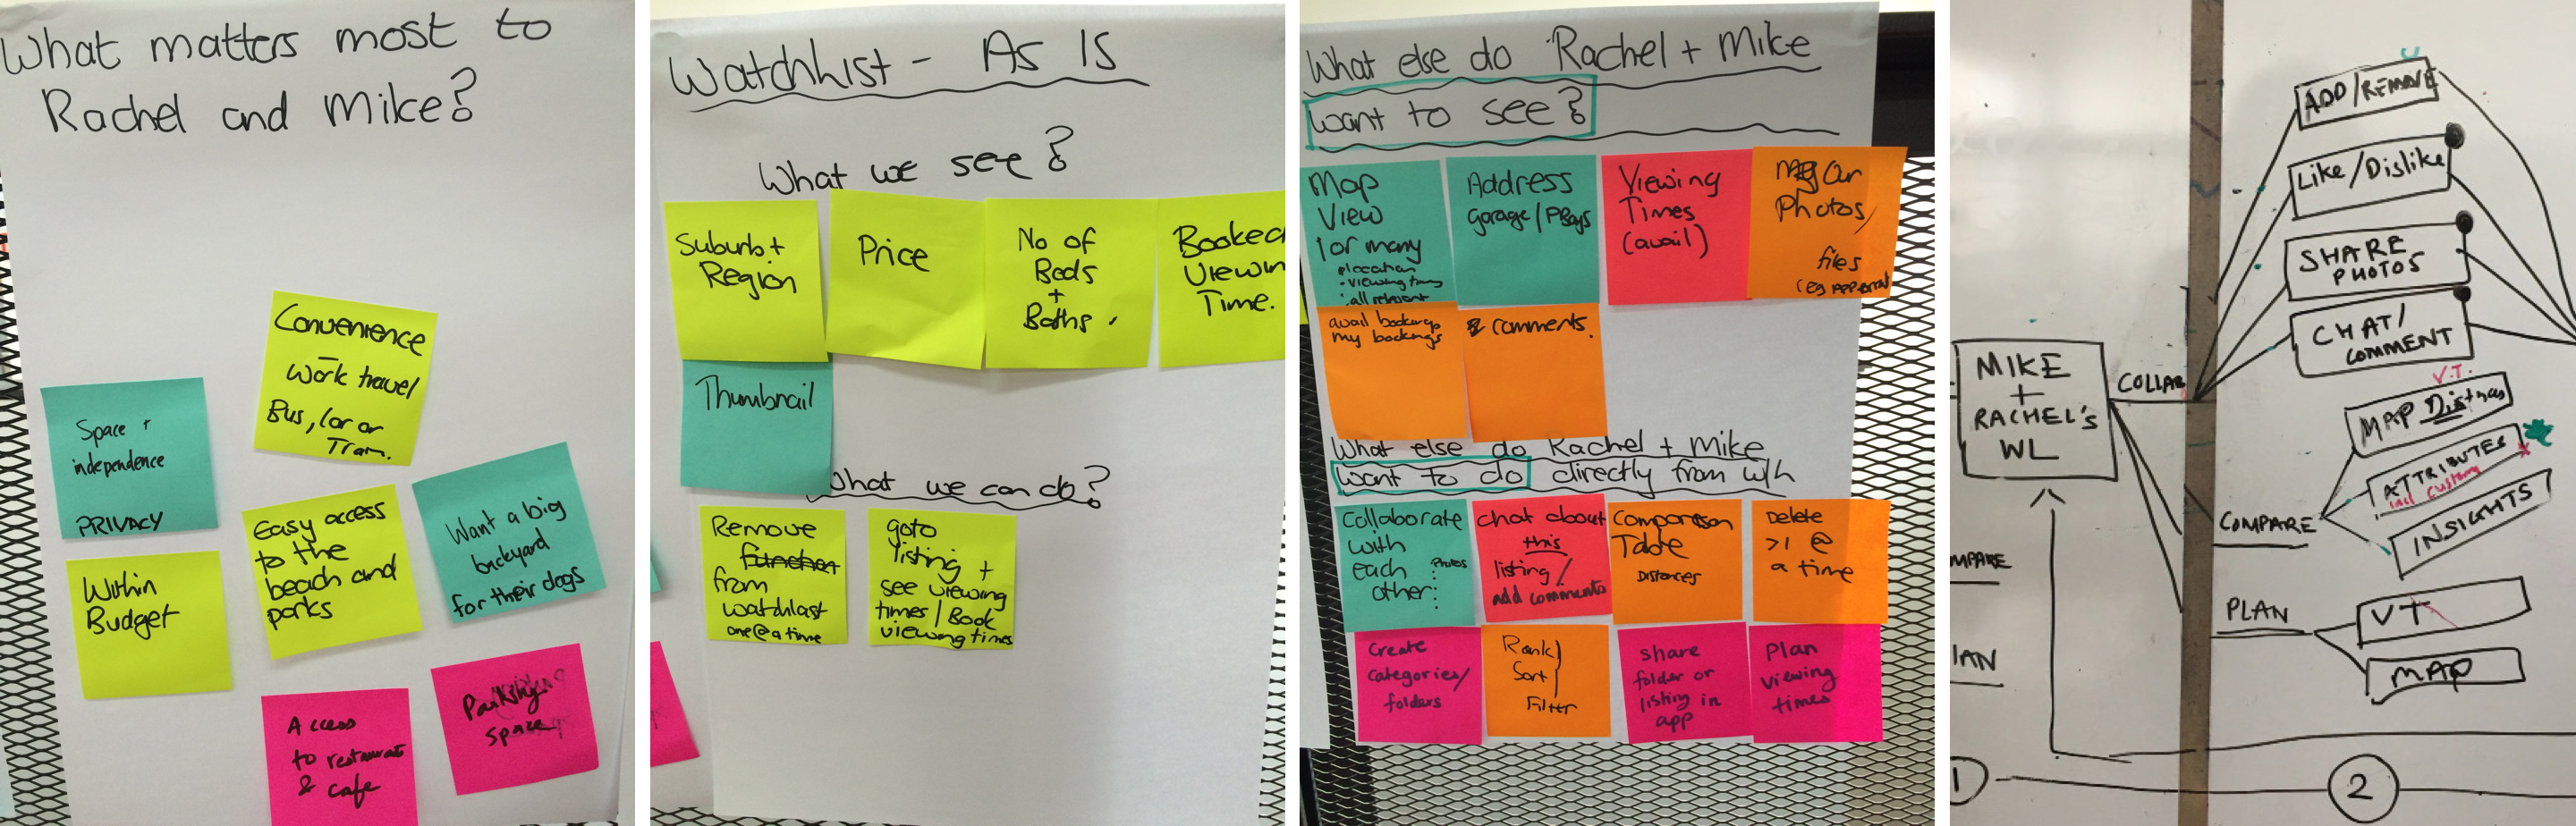 What matters most to
Rachel and Mike?
Convenience
–
Work travel
Bus, Car or
Tram.
Space +
independence
PRIVACY
Easy access
to the
beach and
parks
Want a big
backyard
for their dogs
Within
Budget
Access
to restaurants
& cafe
Parking
space
Watchlist - As Is
What we see?
Suburb +
Region
Price
No of
Beds
+
Baths
Booked
Viewin
Time.
Thumbnail
What we can do?
Remove
from
watchlast
one @ a time
goto
listing +
see viewing
times / Book
viewing times
What else do Rachel + Mike
want to see?
Map
View
1 or many
location
viewing times
all relevant
Address
garage/
Viewing
Times
(avail)
Our
Photos,
files
(eg
avail bookings
my bookings
comments.
What else do Rachel + Mike
want to do directly from w/h
Collaborate
with
each
other:
Photos
chat about
this
listing /
add comments
Comparison
Table
Distances
Delete
>1 @
a time
Create
categories/
folders
Rank
Sort
Filter
share
folder or
listing in
app
Plan
viewing
times
MIKE
+
RACHEL'S
WL
COLLAB
ADD/REMOVE
Like/Dislike
SHARE
PHOTOS
CHAT/
COMMENT
V.T.
MAP
ATTRIBUTES
incl custom
INSIGHTS
COMPARE
PLAN
VT
MAP
MPARE
LAN
1
2